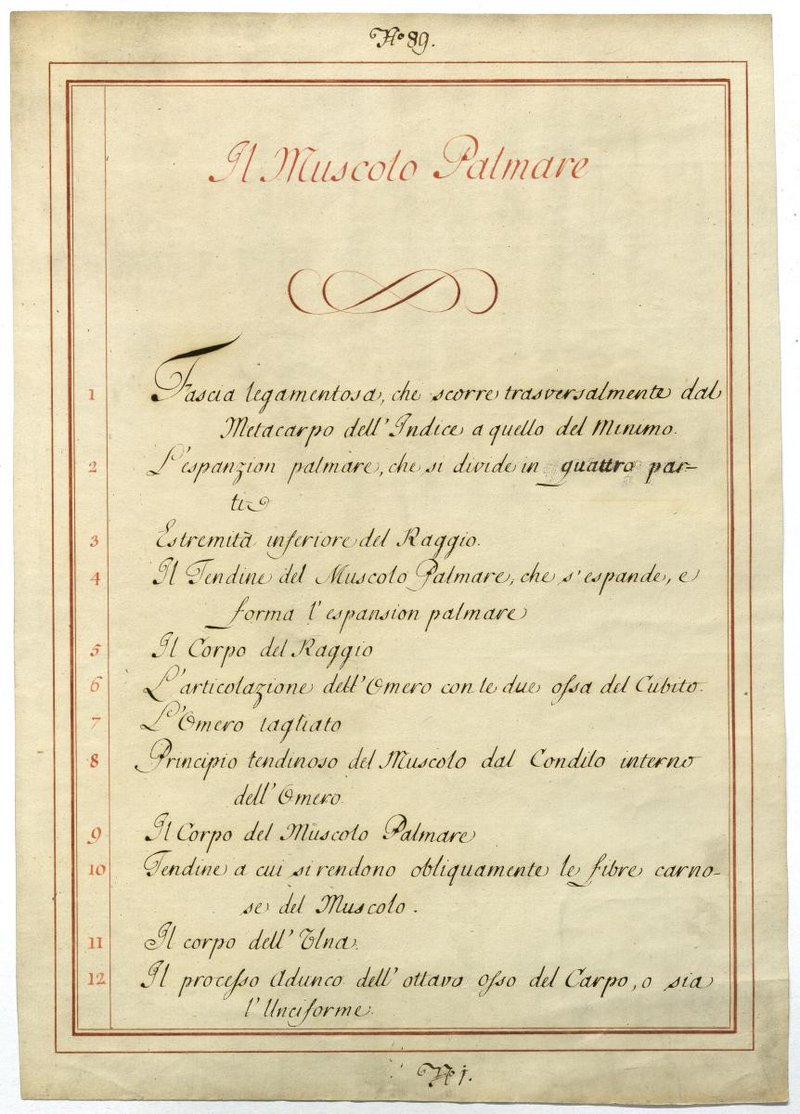 No 89.
Il Muscolo Palmare
1 Fascia legamentosa, che scorre trasversalmente dal
Metacarpo dell'Indice a quello del Minimo.
2 L'espanzion palmare, che si divide in quattro par-
ti
3 Estremità inferiore del Raggio.
4 Il Tendine del Muscolo Palmare, che s'espande, e
forma l'espansion palmare
5 Il Corpo del Raggio
6 L'articolazione dell'Omero con le due ossa del Cubito.
7 L'Omero tagliato
8 Principio tendinoso del Muscolo dal Condilo interno
dell'Omero.
9 Il Corpo del Muscolo Palmare
10 Tendine a cui si rendono obliquamente le fibre carno-
se del Muscolo.
11 Il corpo dell'Ulna.
12 Il processo Adunco dell'ottavo osso del Carpo, o sia
l'Unciforme.
N 1.